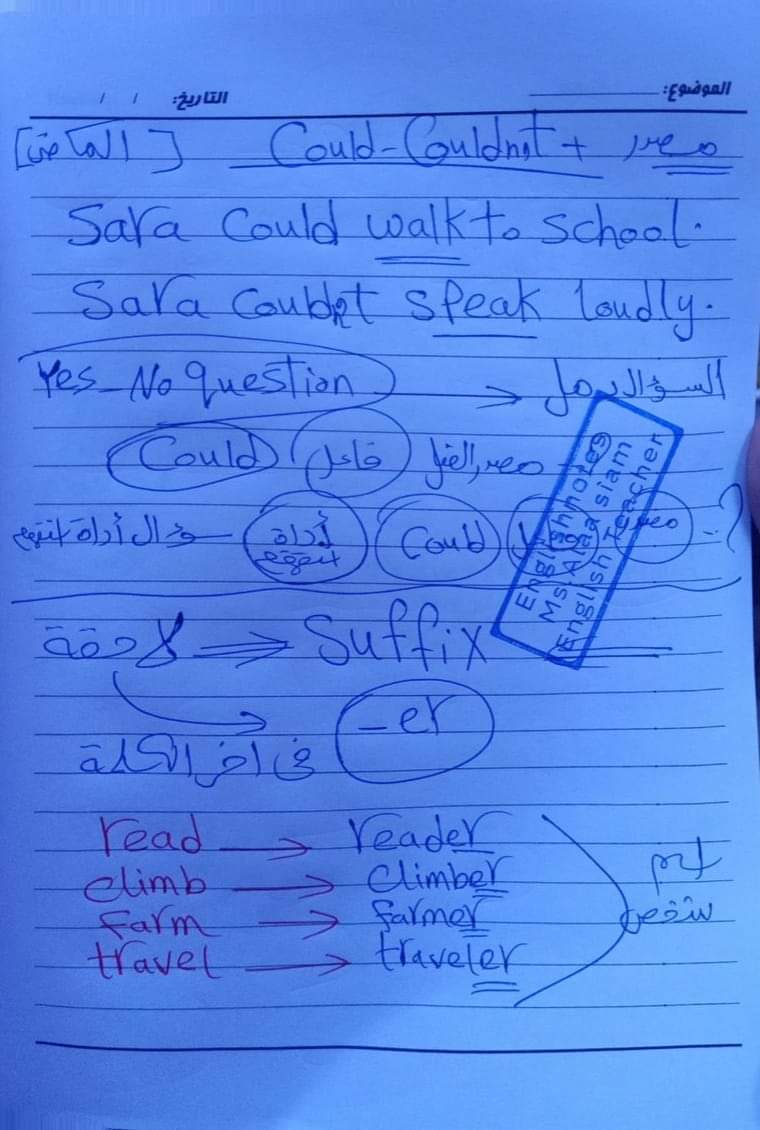 الموضوع: التاريخ: / /
Could - Couldnot + مصدر [الماضى]
Sara Could walk to school.
Sara Couldn't speak loudly.
Yes_No question → السؤال بهل
Could فاعل مصدر الفعل
سؤال أداة استفهام أداة استفهام Could مصدر ..؟
لاحقة ⇒ Suffix
فى اخر الكلمة -er
read → reader
climb → climber
farm → farmer
travel → traveler
اسم
شخص
English notes
Ms. Alaa siam
English Teacher